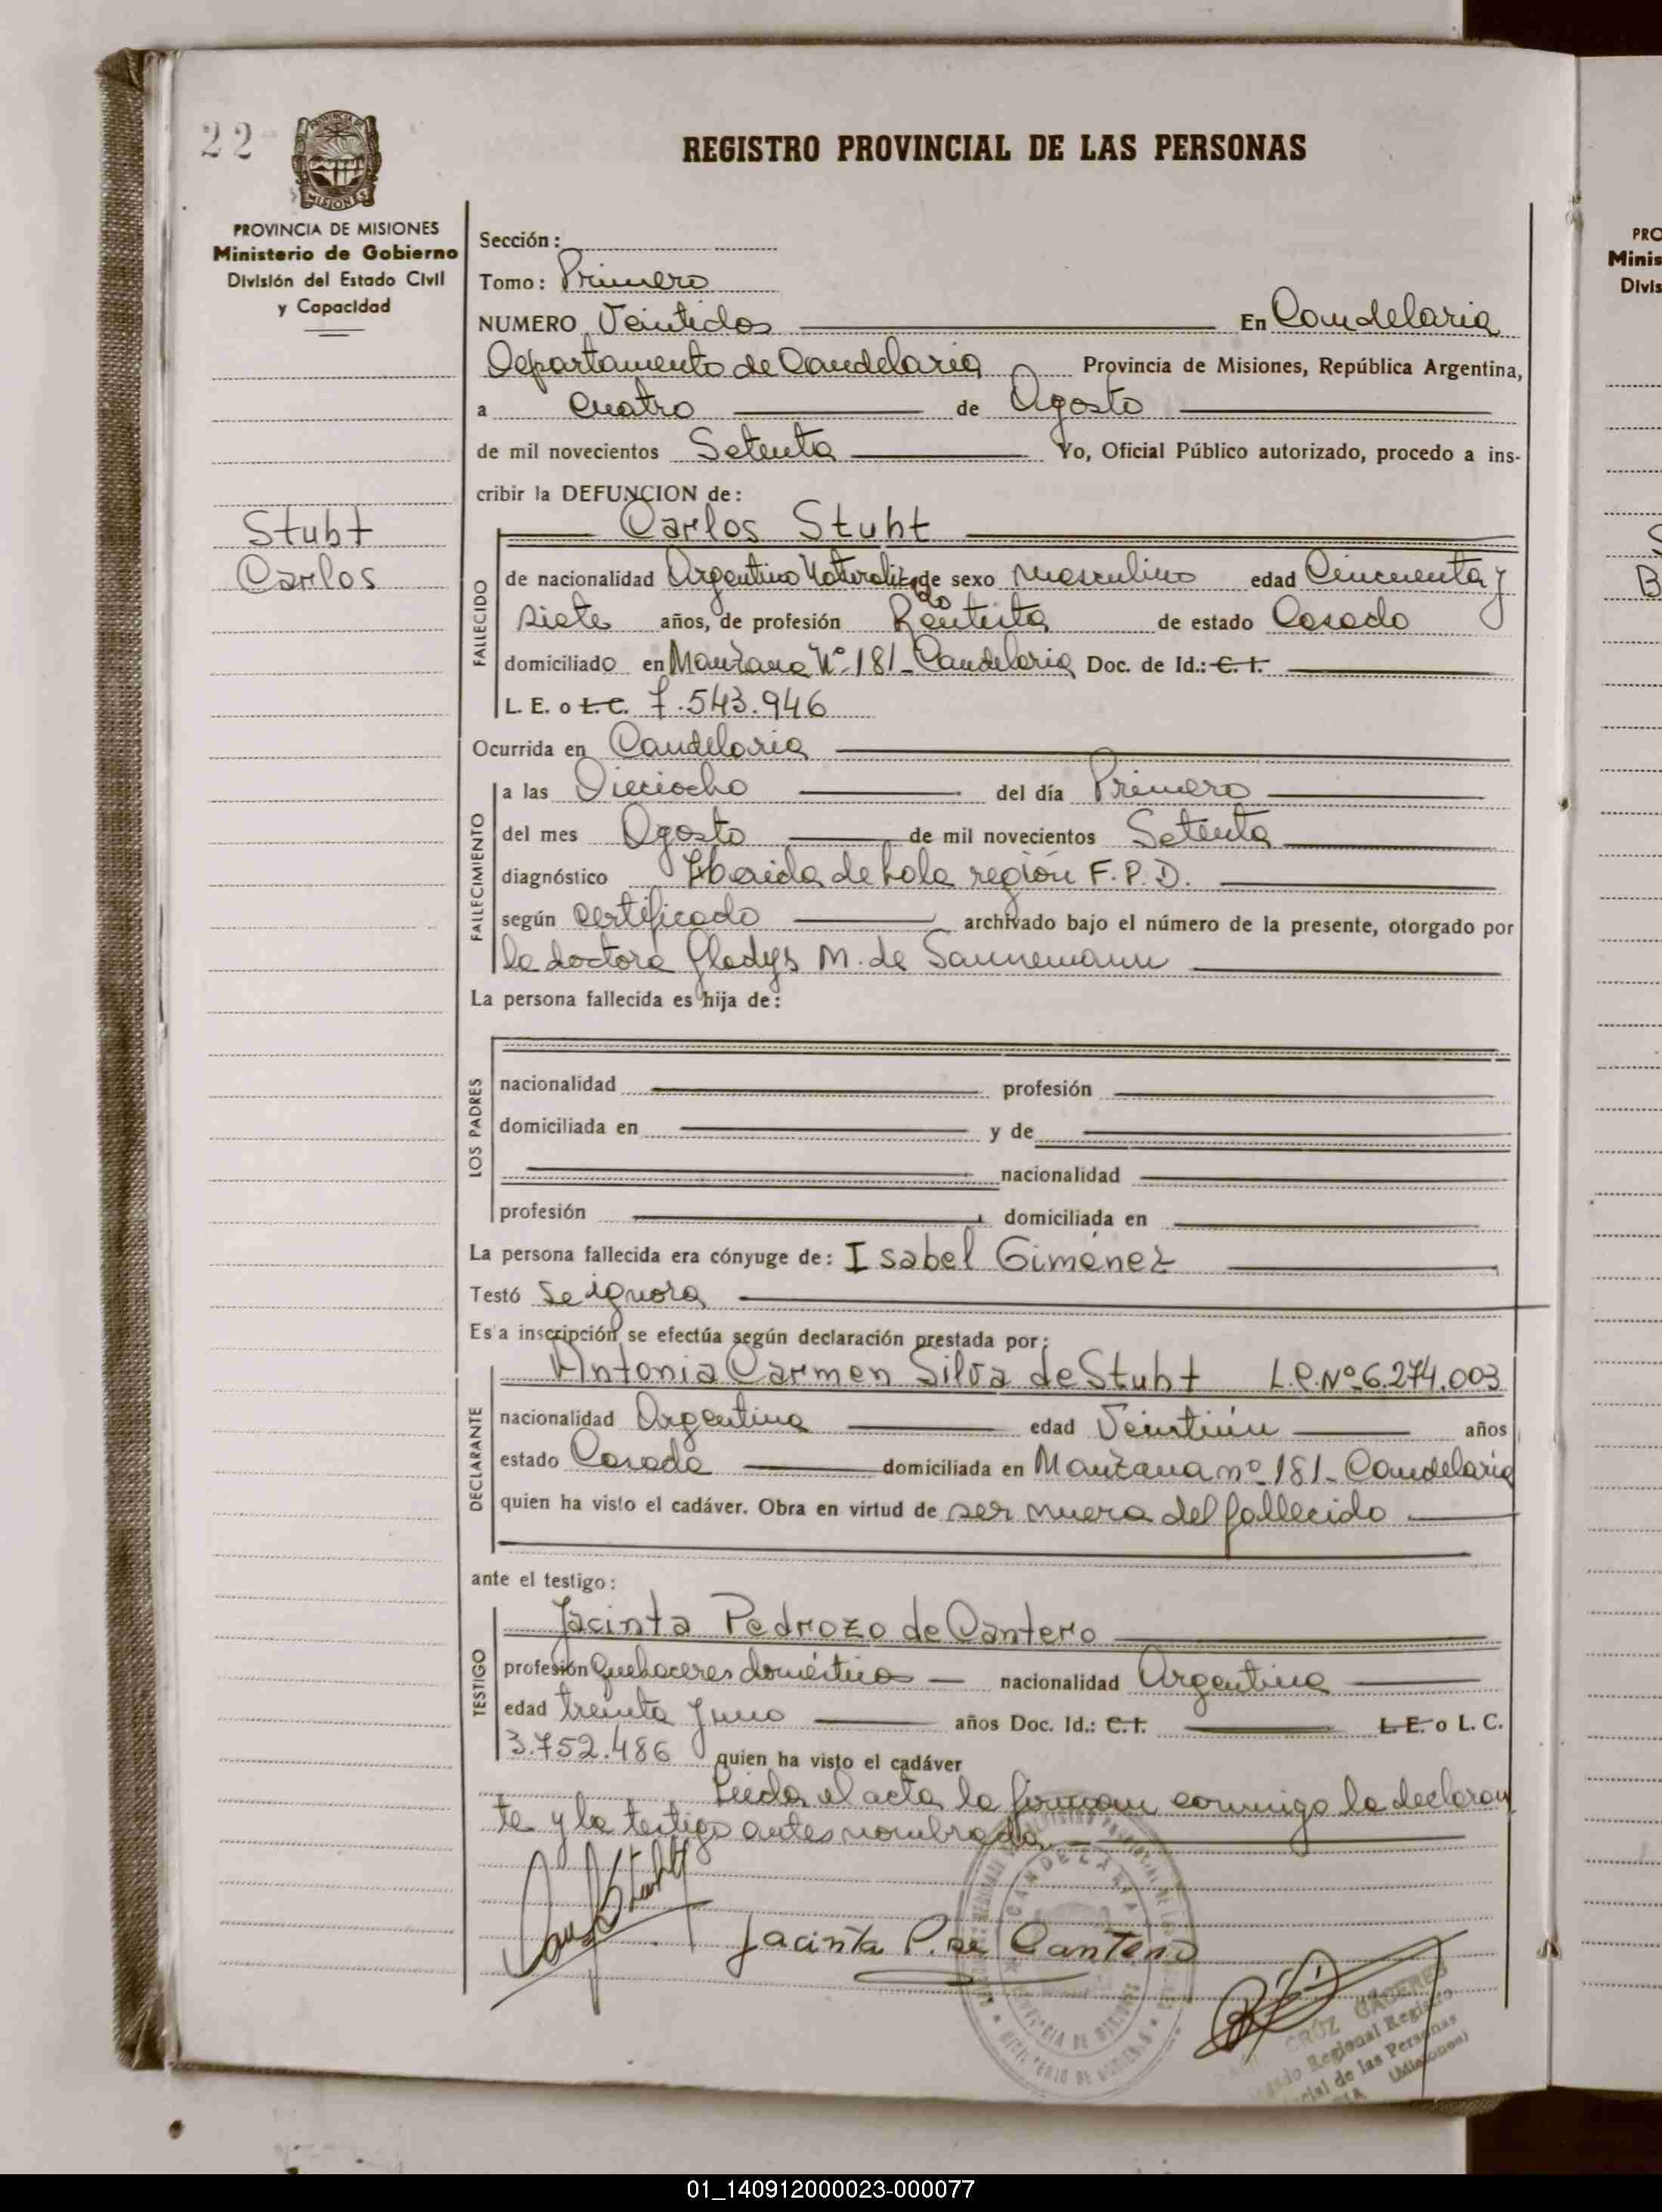 22
PROVINCIA DE MISIONES
Ministerio de Gobierno
División del Estado Civil
y Capacidad
Stubt
Carlos
REGISTRO PROVINCIAL DE LAS PERSONAS
Sección:
Tomo: Primero
NUMERO Veintidos En Candelaria
Departamento de Candelaria Provincia de Misiones, República Argentina,
a Cuatro de Agosto
de mil novecientos Setenta Yo, Oficial Público autorizado, procedo a ins-
cribir la DEFUNCION de:
Carlos Stubt
FALLECIDO
de nacionalidad Argentino Naturalizado de sexo Masculino edad Cincuenta y
siete años, de profesión Rentista de estado Casado
domiciliado en Manzana Nº 181 - Candelaria Doc. de Id.: C. I.
L. E. o L. C. 7.543.946
Ocurrida en Candelaria
FALLECIMIENTO
a las Dieciocho del día Primero
del mes Agosto de mil novecientos Setenta
diagnóstico Herida de bala región F. P. D.
según certificado archivado bajo el número de la presente, otorgado por
la doctora Gladys M. de Sannemann
La persona fallecida es hija de:
LOS PADRES
nacionalidad profesión
domiciliada en y de
nacionalidad
profesión domiciliada en
La persona fallecida era cónyuge de: Isabel Gimenez
Testó Se ignora
Es a inscripción se efectúa según declaración prestada por:
DECLARANTE
Antonia Carmen Silva de Stubt L.C. Nº 6.274.003
nacionalidad Argentina edad Veintiún años
estado Casada domiciliada en Manzana nº 181 - Candelaria
quien ha visto el cadáver. Obra en virtud de ser nuera del fallecido
ante el testigo:
TESTIGO
Jacinta Pedrozo de Cantero
profesión Quehaceres domésticos nacionalidad Argentina
edad treinta y uno años Doc. Id.: C. I. L. E. o L. C.
3.752.486 quien ha visto el cadáver
Leida el acta la firman conmigo la declaran
te y la testigo antes nombrada
Jacinta P. de Cantero
CANDELARIA
PROVINCIA DE MISIONES
MINISTERIO DE GOBIERNO
CRUZ CACERES
Regional Registro
de las Personas
(Misiones)
PRO
Minis
Divis
S
B
01_140912000023-000077